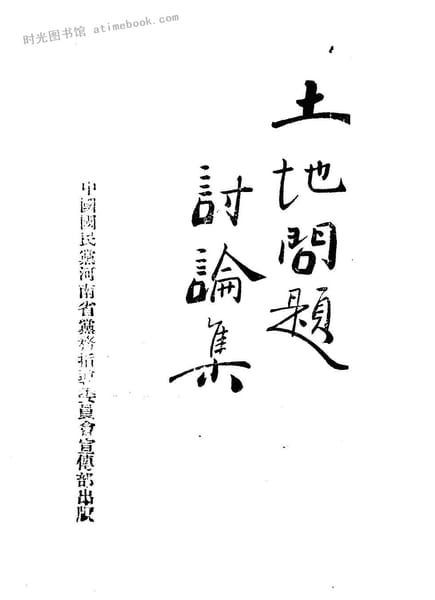 时光图书馆 atimebook.com
土地問題
討論集
中國國民黨河南省黨務指導委員會宣傳部出版